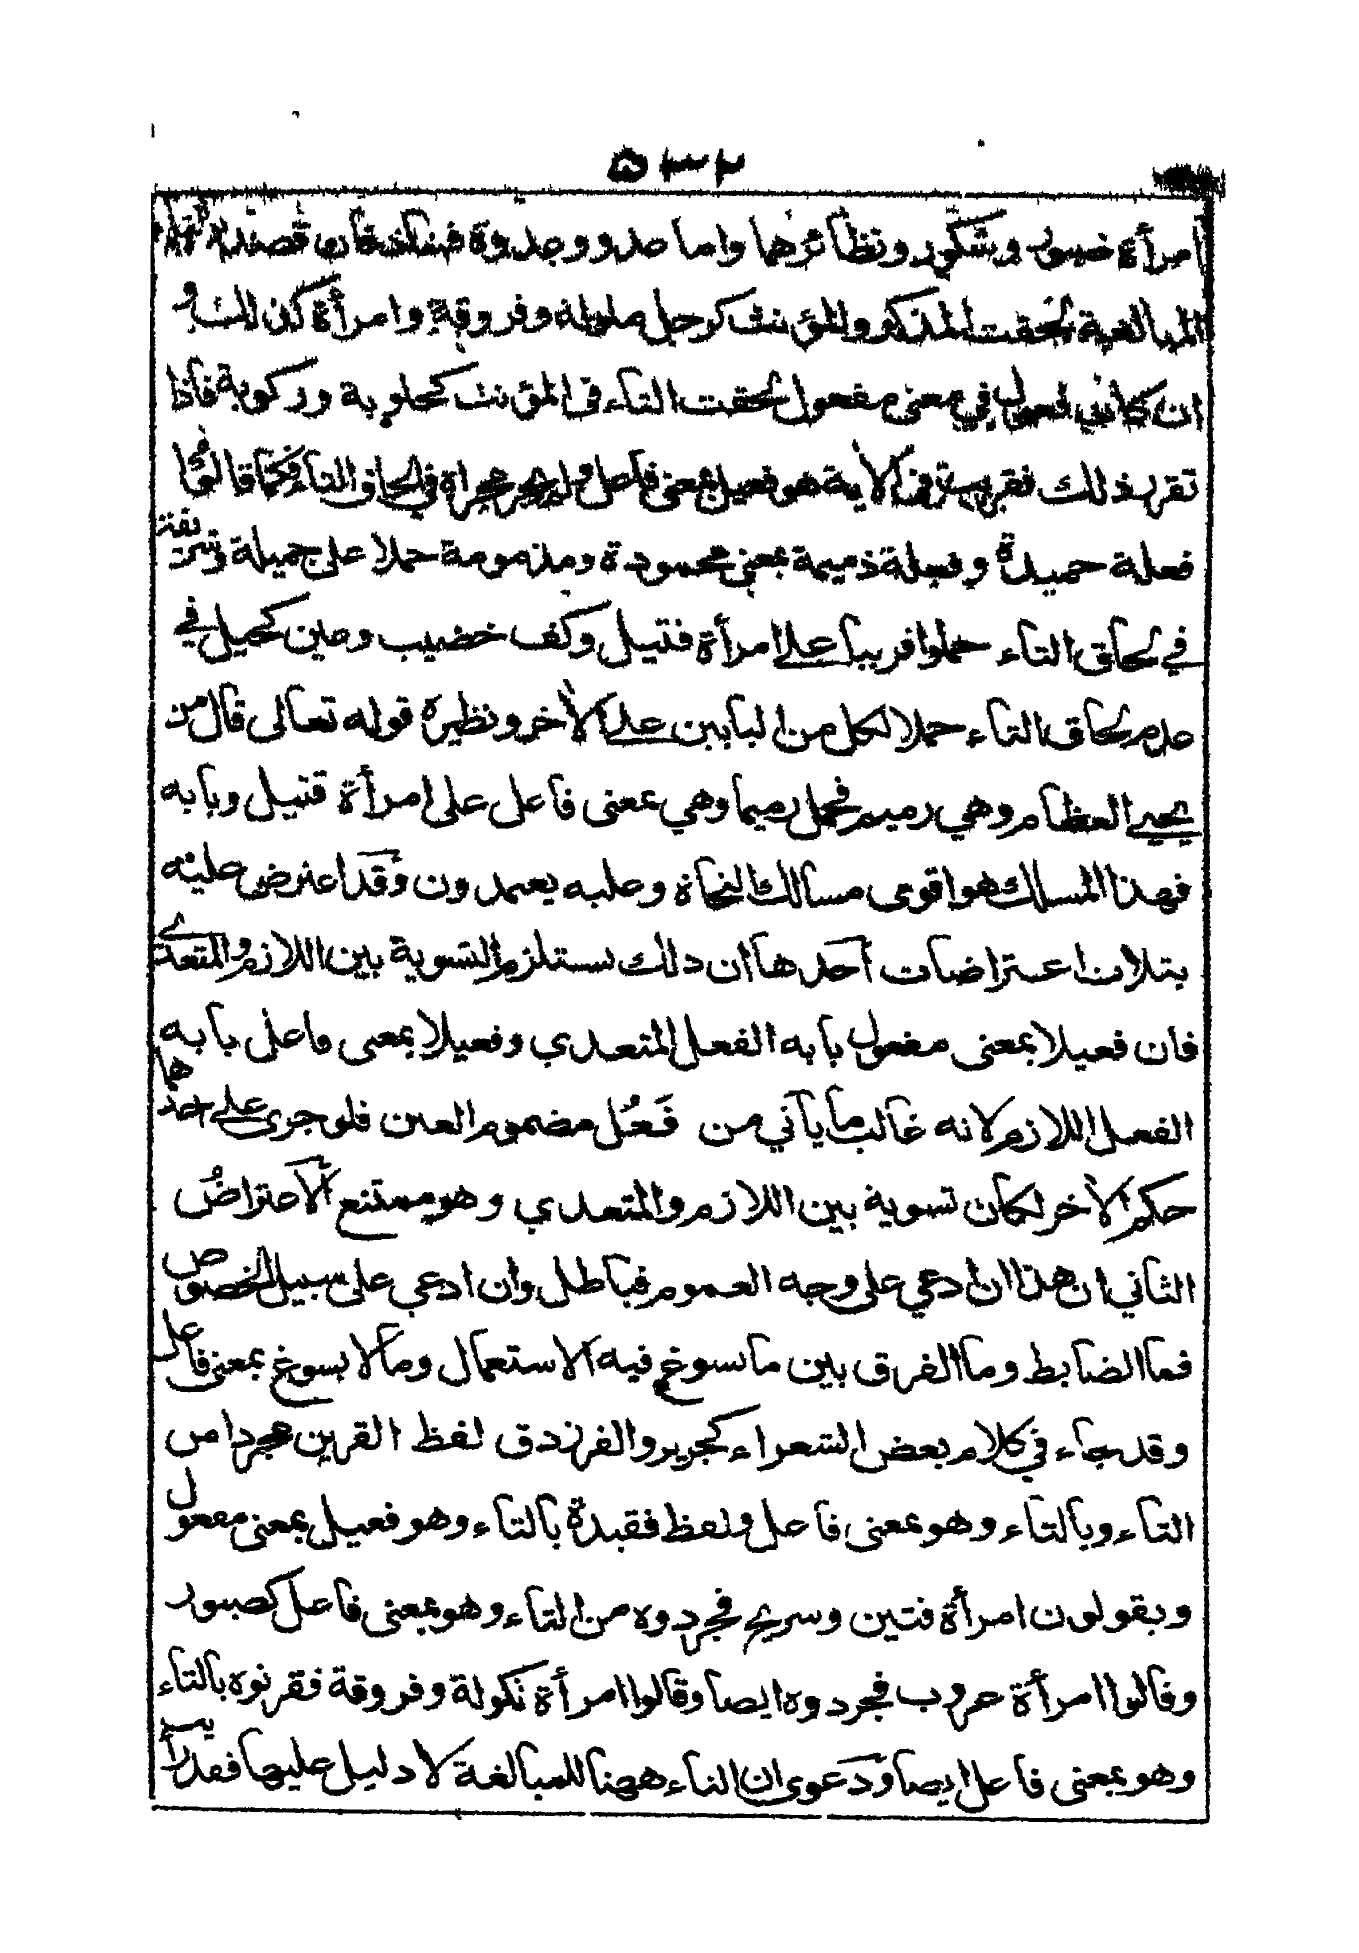 امرأة صبور وشكور ونظائرهما واما عدو وعدوة فشاذ فان قصدت
المبالغة لحقت المذكر والمؤنث كرجل ملولة وفروقة وامرأة كذلك و
ان كان في معنى مفعول لحقت التاء في المؤنث كحلوبة وركوبة فاذا
تقرر ذلك فقريب في الآية هو فعيل بمعنى فاعل وليس مجراة في الحاق التاء فكما قالوا
فعلة حميدة وفعلة ذميمة بمعنى محمودة ومذمومة حملا على جميلة وشريفة
في لحاق التاء حملوا قريبا على امرأة قتيل وكف خضيب وعين كحيل في
عدم لحاق التاء حملا لكل من البابين على الآخر ونظيره قوله تعالى قال من
يحيى العظام وهي رميم فحمل رميما وهي بمعنى فاعل على امرأة قتيل وبابه
فهذا المسلك هو اقوى مسالك النحاة وعليه يعتمدون وقد اعترض عليه
بثلاث اعتراضات أحدها ان ذلك يستلزم التسوية بين اللازم والمتعدي
فان فعيلا بمعنى مفعول بابه الفعل المتعدي وفعيلا بمعنى فاعل بابه
الفعل اللازم لانه غالب ما يأتي من فَعُل مضموم العين فلو جرى على احدهما
حكم الآخر لكان تسوية بين اللازم والمتعدي وهو ممتنع الاعتراض
الثاني ان هذا ان ادعي على وجه العموم فباطل وان ادعي على سبيل الخصوص
فما الضابط وما الفرق بين ما يسوغ فيه الاستعمال وما لا يسوغ بمعنى فاعل
وقد جاء في كلام بعض الشعراء كجرير والفرزدق لفظ القرين مجردا من
التاء وبالتاء وهو بمعنى فاعل ولفظ فقيدة بالتاء وهو فعيل بمعنى مفعول
ويقولون امرأة فتين وسريح فجردوه من التاء وهو بمعنى فاعل كصبور
وقالوا امرأة حروب فجردوه ايضا وقالوا امرأة نكولة وفروقة فقرنوه بالتاء
وهو بمعنى فاعل ايضا ودعوى ان التاء ههنا للمبالغة لا دليل عليها فقد رأيت